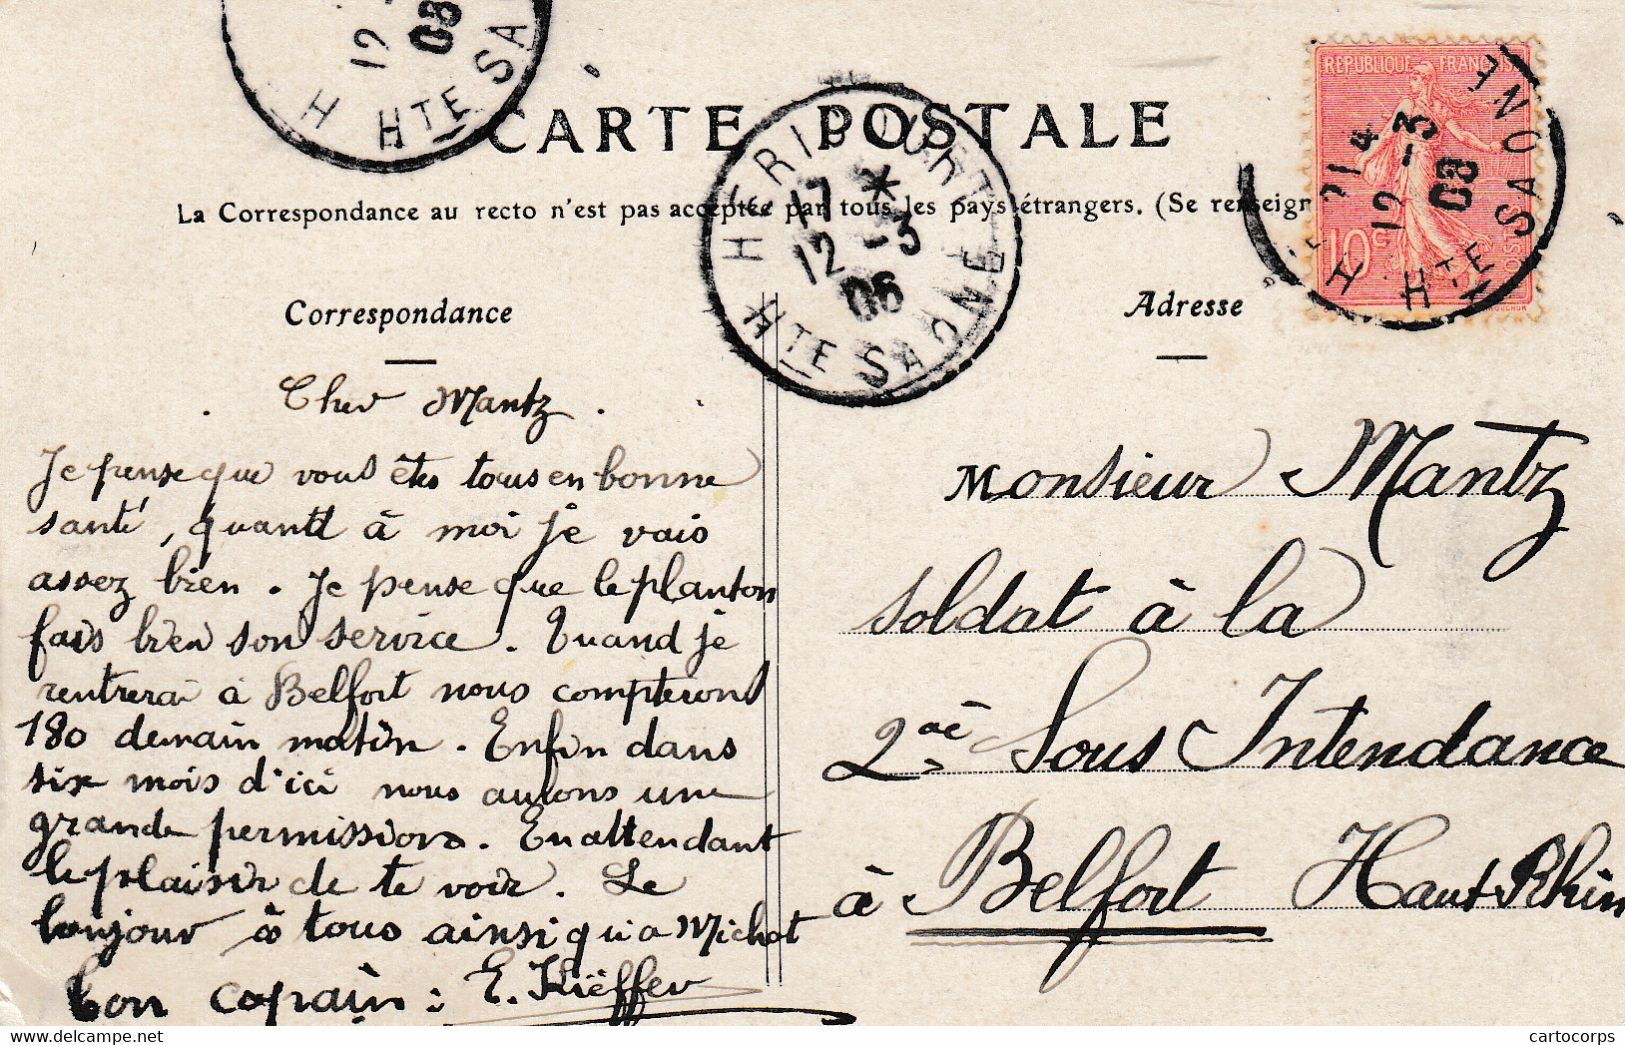 H
12
08
HTE SA
CARTE POSTALE
HERICOURT
17 *
12 -3
06
HTE SAONE
REPUBLIQUE FRANÇAISE
10c
21 4
12 -3
08
H
HTE SAONE
La Correspondance au recto n'est pas acceptée par tous les pays étrangers. (Se renseign
Correspondance
Cher Mantz
Je pense que vous êtes tous en bonne
santé, quantd à moi je vais
assez bien. Je pense que le planton
fais bien son service. Quand je
rentrerai à Belfort nous compterons
180 demain matin. Enfin dans
six mois d'ici nous aulons une
grande permission. En attendant
le plaisir de te voir. Le
bonjour à tous ainsi qu'a Michot
bon copain : E. Kiëffer
Adresse
Monsieur Mantz
soldat à la
2ae Sous Intendance
à Belfort Haut-Rhin
cartocorps